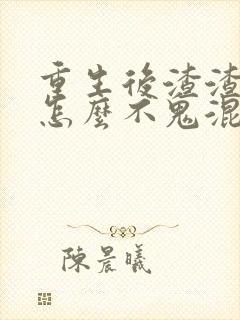 重生後渣渣
怎麼不鬼混
陳晨曦